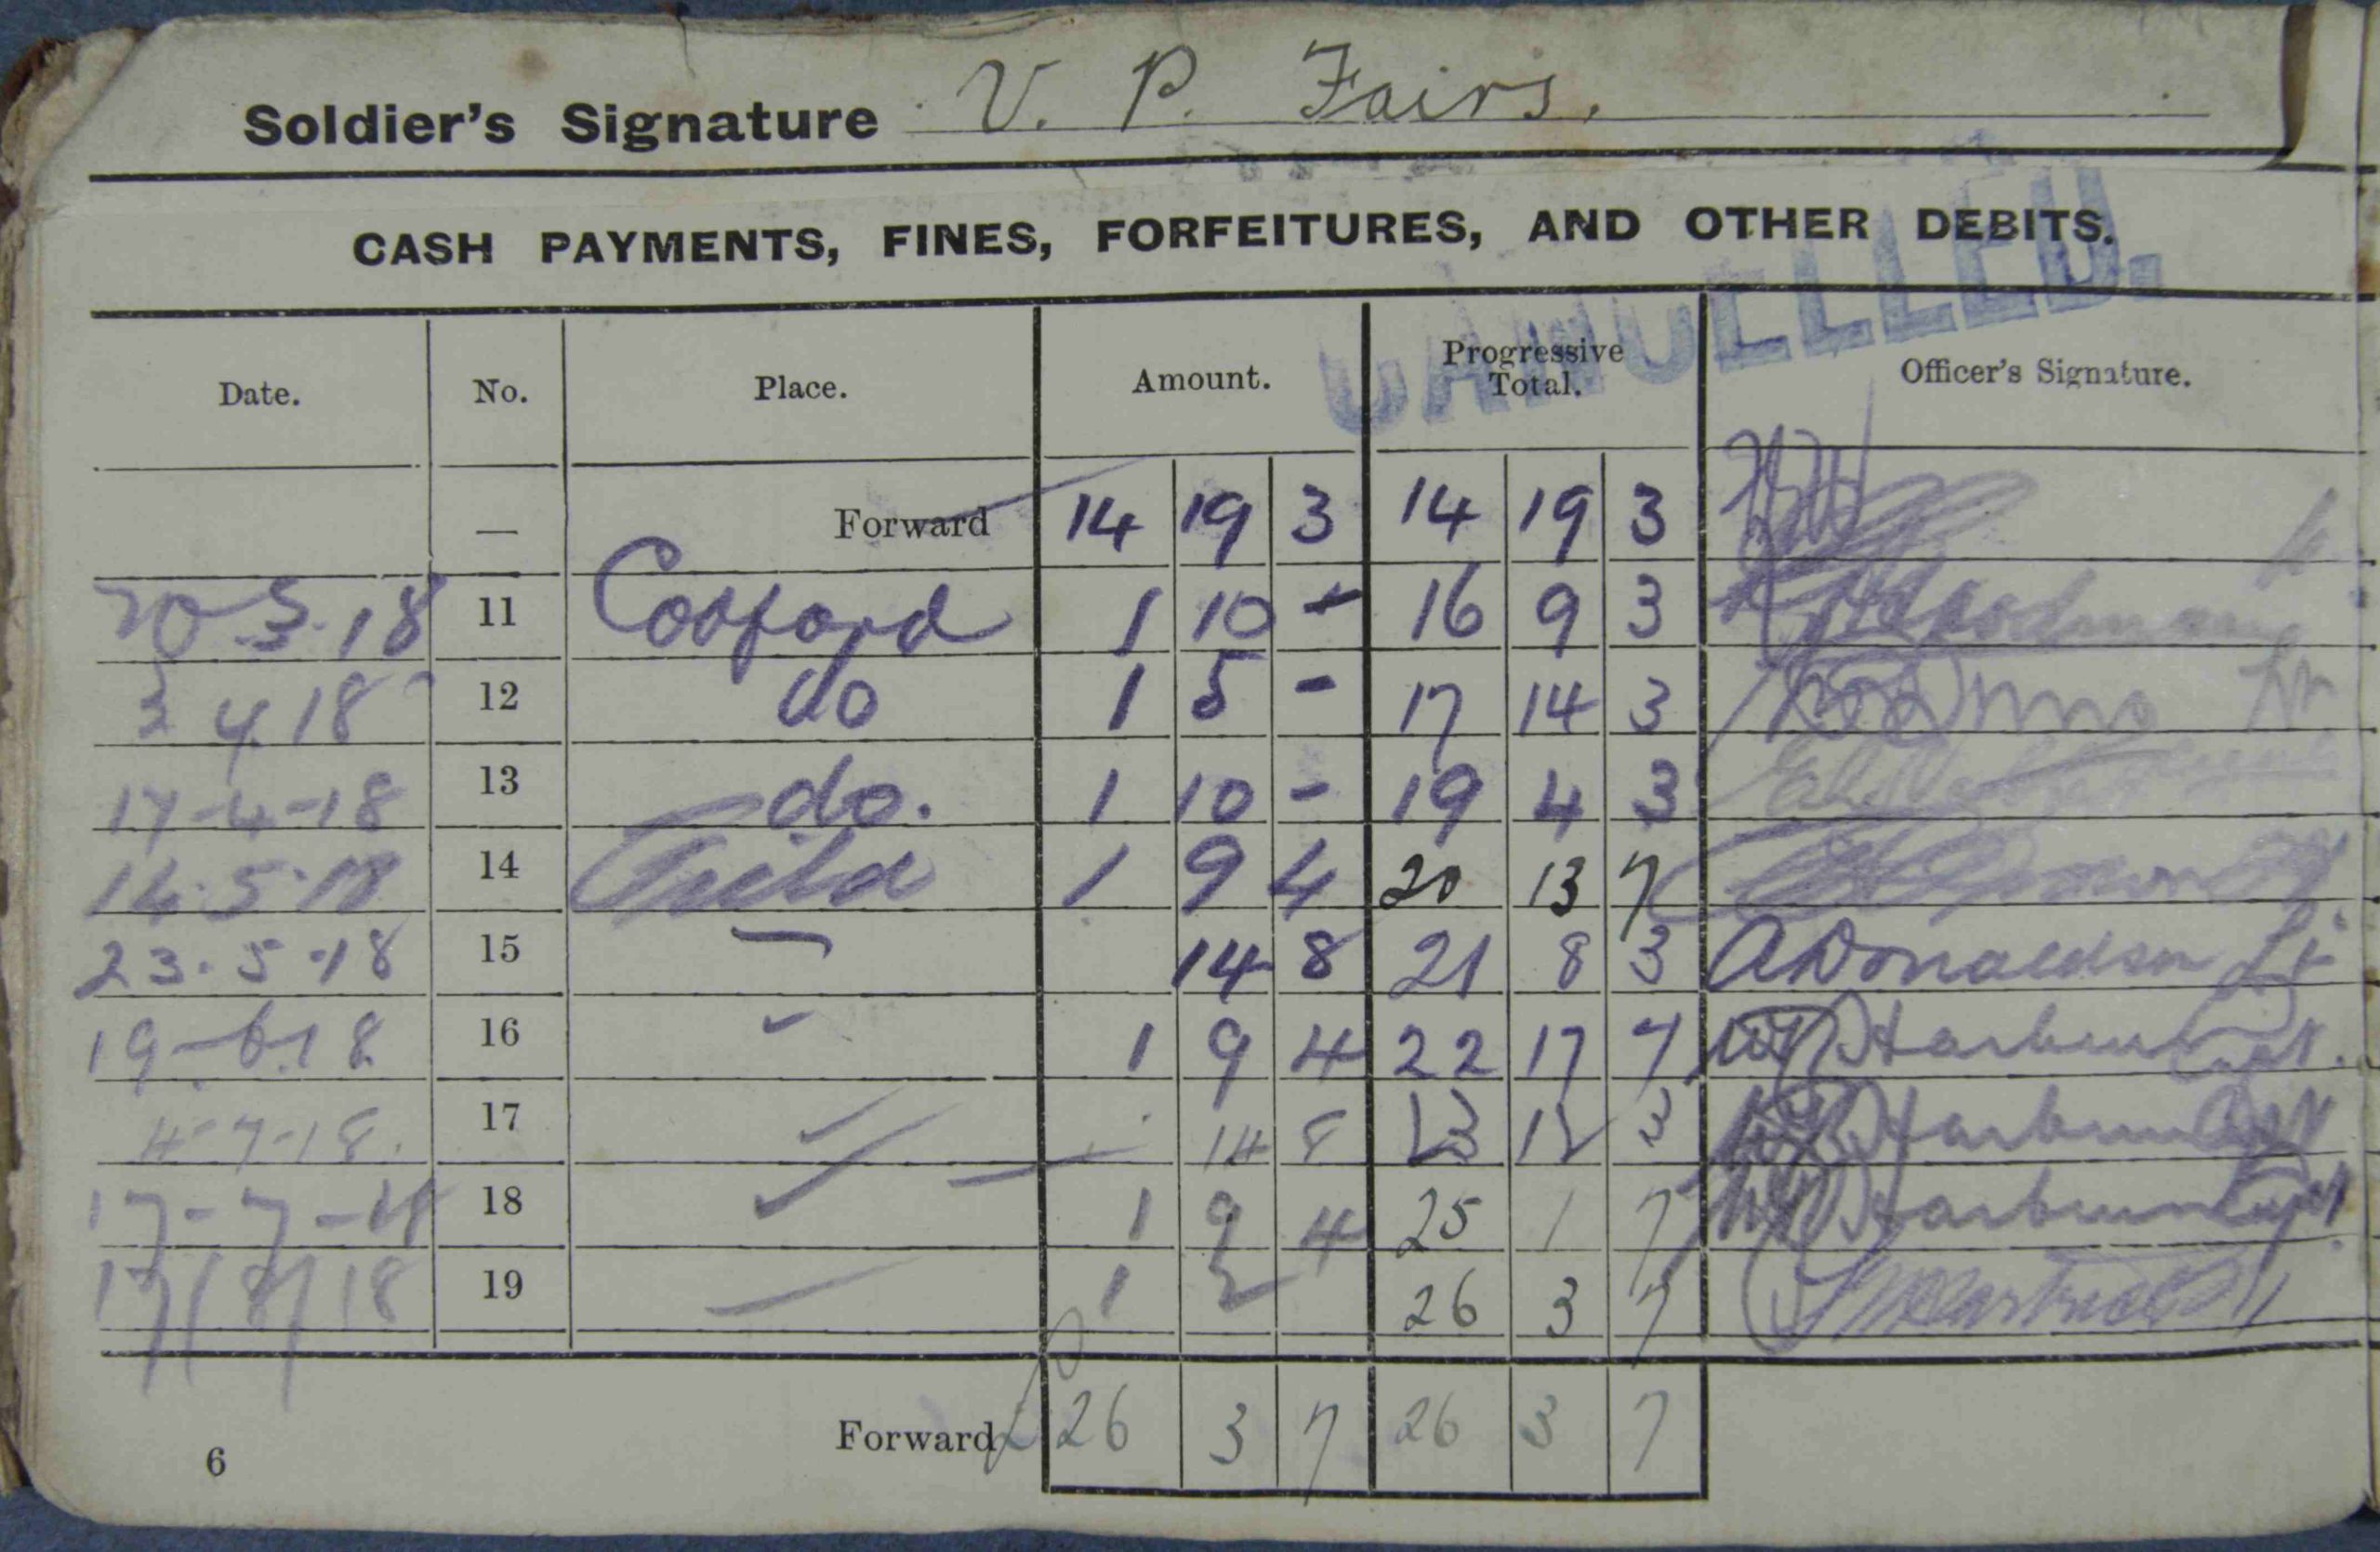 Soldier's Signature V. P. Fairs.
CASH PAYMENTS, FINES, FORFEITURES, AND OTHER DEBITS.
CANCELLED.
Date. No. Place. Amount. Progressive Total. Officer's Signature.
— Forward 14 19 3 14 19 3
20.3.18 11 Codford 1 10 - 16 9 3
3 4 18 12 do 1 5 - 17 14 3
17-4-18 13 do. 1 10 - 19 4 3
14.5.18 14 Field 1 9 4 20 13 7
23.5.18 15 — 14 8 21 8 3 A Donaldson Lt
19-6-18 16 1 9 4 22 17 7 Capt.
4-7-18. 17 14 8 23 12 3 Capt
17-7-18 18 1 9 4 25 1 7 Capt
17/8/18 19 — 1 2 26 3 7
Forward £ 26 3 7 26 3 7
6